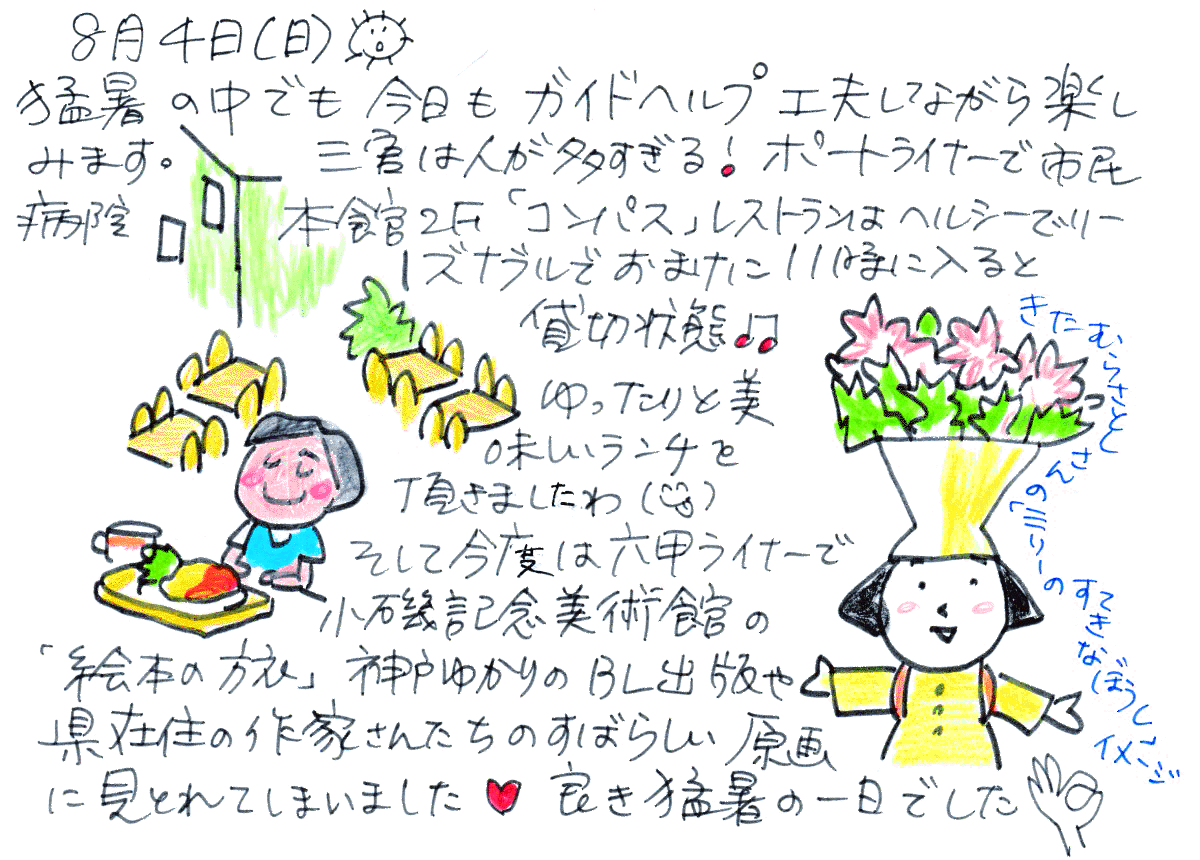 8月4日(日)
猛暑の中でも今日もガイドヘルプ工夫しながら楽し
みます。 三宮は人が多すぎる! ポートライナーで市民
病院 本館2F「コンパス」レストランはヘルシーでリー
ーズナブルでおまけに11時に入ると
貸切状態♫
ゆったりと美
味しいランチを
頂きましたわ(😋)
そして今度は六甲ライナーで
小磯記念美術館の
「絵本の旅」神戸ゆかりのBL出版や
県在住の作家さんたちのすばらしい原画
に見とれてしまいました♥ 良き猛暑の一日でした
きたむらさとし
さんの「ミリーの
すてきなぼうし」
イメージ